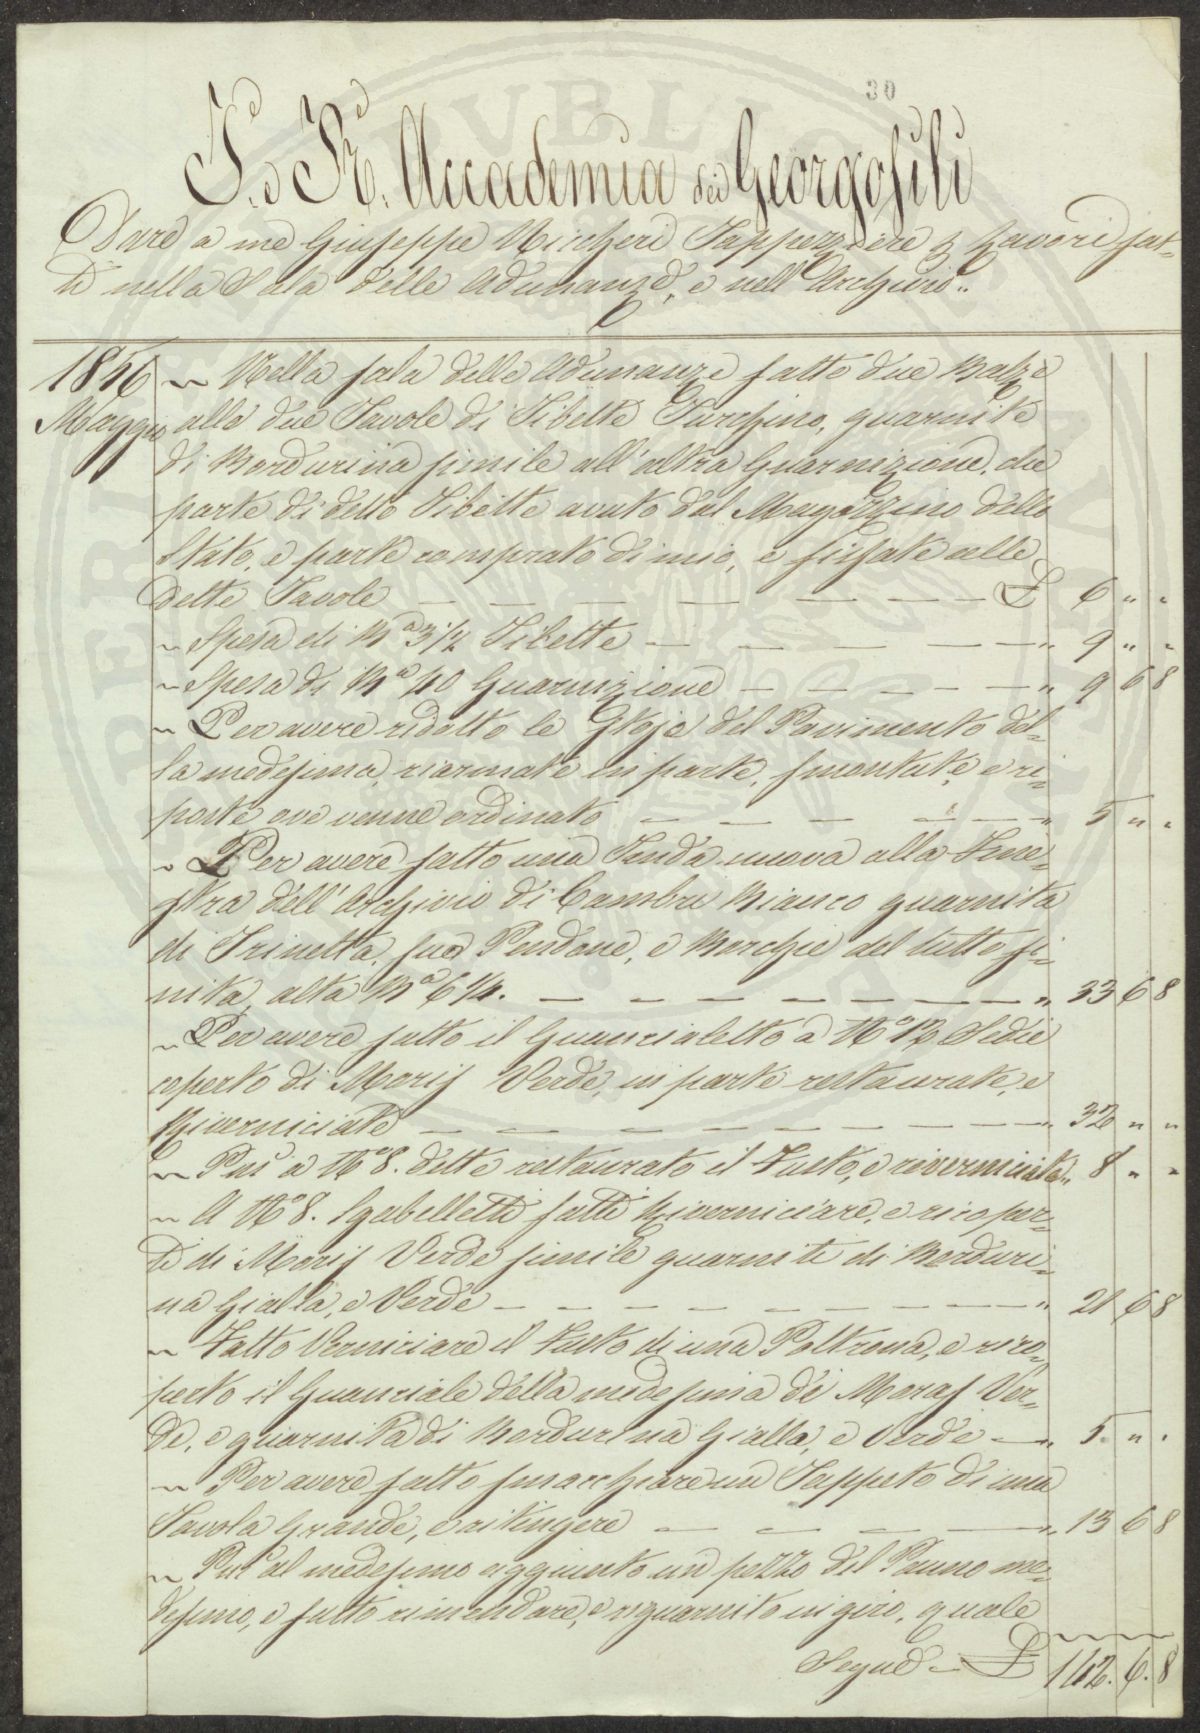 30
I. e R. Accademia dei Georgofili
Dare a me Giuseppe Micheri Tappezziere p. Lavori fat-
ti nella Sala delle Adunanze, e nell'Archivio..
1856 Nella sala delle Adunanze fatto due Balze
Maggio alle due Tavole di Tibette Turchino, guarnite
di Bordurina simile all'altra Guarnizione, da
parte di detto Tibette avuto dal Magazzino dello
Stato, e parte comprato di mio, e fissate alle
dette Tavole £ 6 " "
Spesa di Ba 3 1/2 Tibette " 9 " "
Spesa di Ba 40 Guarnizione " 9 6 8
Per avere ridotto le Stoje del Pavimento del-
la medesima, riarmate in parte, smontate, e ri-
poste ove venne ordinato " 5 " "
Per avere fatto una Tenda nuova alla Fine-
stra dell'Archivio di Cambri Bianco guarnita
di Trinetta, suo Pendone, e Borchie del tutto fi-
nita, alta Ba 6 1/4. " 33 6 8
Per avere fatto il Guancialetto a No 12 Sedie
coperto di Moris Verde, in parte restaurate, e
Riverniciate " 32 " "
Piu a No 8. dette restaurato il Fusto, e riverniciate " 8 " "
A No 8. Sgabelletti fatti Riverniciare, e ricoper-
ti di Moris Verde simile guarniti di Borduri-
na Gialla, e Verde " 21 6 8
Fatto Verniciare il Fusto di una Poltrona, e rico-
perto il Guanciale della medesima di Moras Ver-
de, e guarnita di Bordurina Gialla, e Verde " 5 " "
Per avere fatto smacchiare un Tappeto di una
Tavola Grande, e ritingere " 13 6 8
Piu al medesimo aggiunto un pezzo del Panno me-
desimo, e fatto rimendare, e riguarnito in giro, quale
Segue £ 142. 6. 8